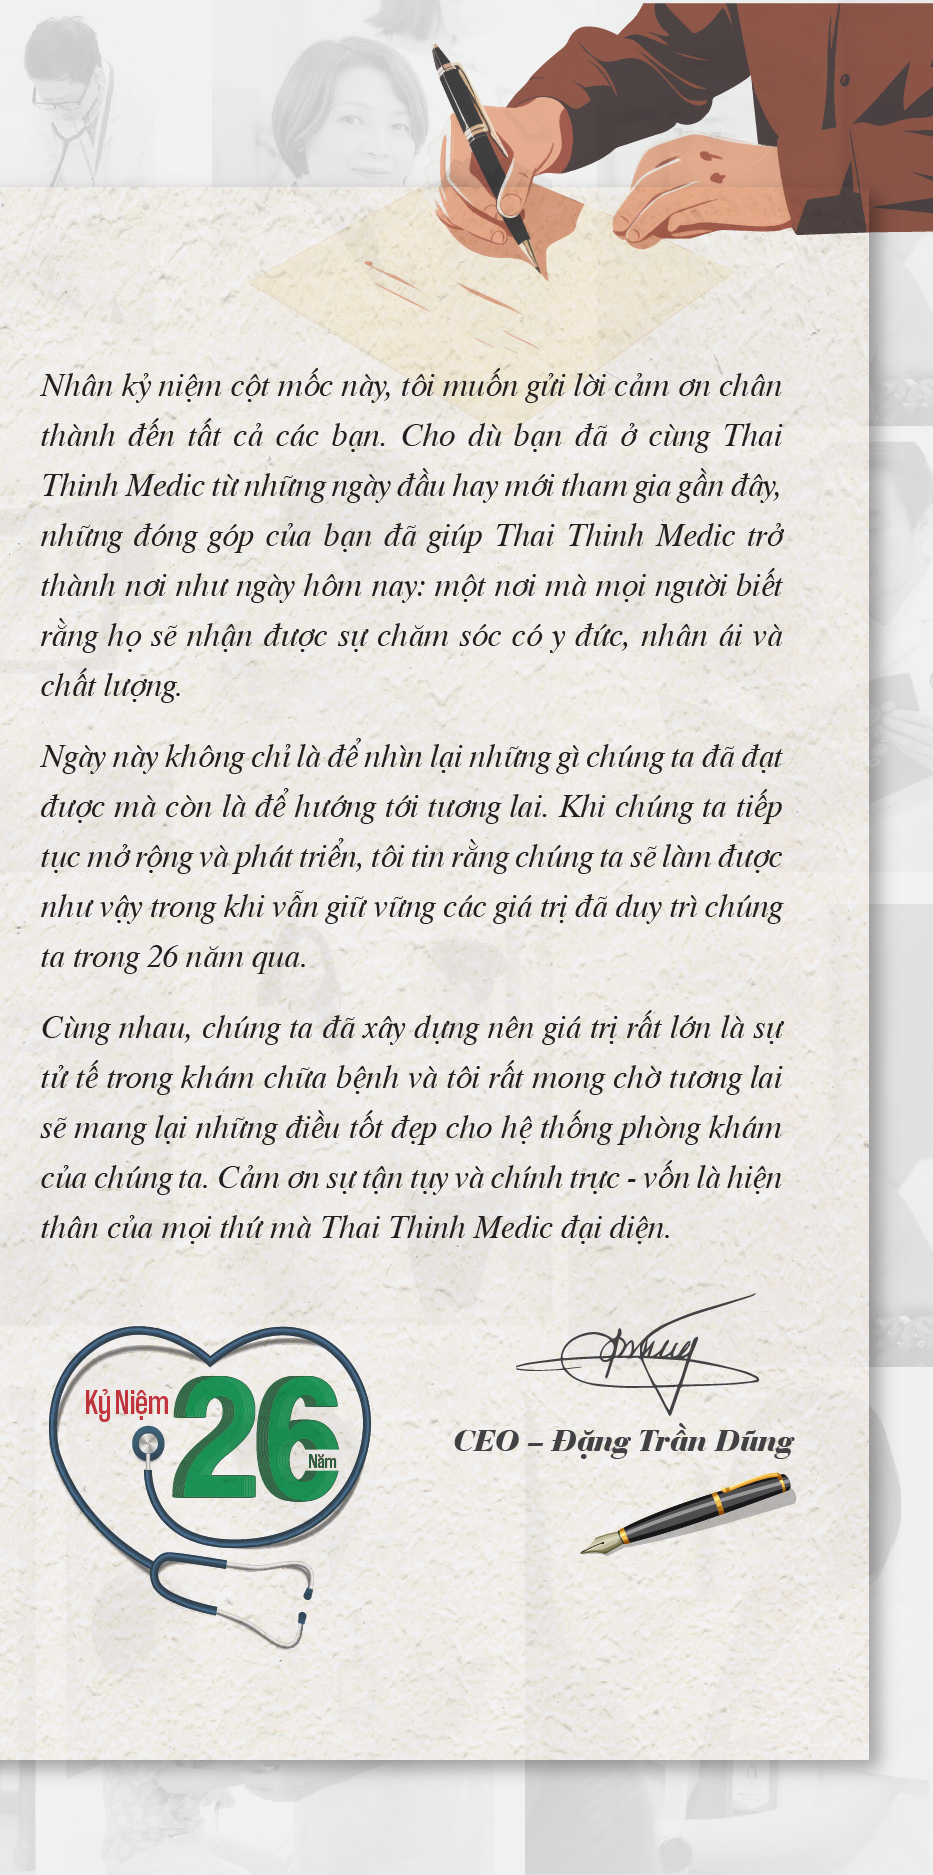 Nhân kỷ niệm cột mốc này, tôi muốn gửi lời cảm ơn chân
thành đến tất cả các bạn. Cho dù bạn đã ở cùng Thai
Thinh Medic từ những ngày đầu hay mới tham gia gần đây,
những đóng góp của bạn đã giúp Thai Thinh Medic trở
thành nơi như ngày hôm nay: một nơi mà mọi người biết
rằng họ sẽ nhận được sự chăm sóc có y đức, nhân ái và
chất lượng.
Ngày này không chỉ là để nhìn lại những gì chúng ta đã đạt
được mà còn là để hướng tới tương lai. Khi chúng ta tiếp
tục mở rộng và phát triển, tôi tin rằng chúng ta sẽ làm được
như vậy trong khi vẫn giữ vững các giá trị đã duy trì chúng
ta trong 26 năm qua.
Cùng nhau, chúng ta đã xây dựng nên giá trị rất lớn là sự
tử tế trong khám chữa bệnh và tôi rất mong chờ tương lai
sẽ mang lại những điều tốt đẹp cho hệ thống phòng khám
của chúng ta. Cảm ơn sự tận tụy và chính trực - vốn là hiện
thân của mọi thứ mà Thai Thinh Medic đại diện.
Kỷ Niệm 26 Năm
CEO – Đặng Trần Dũng